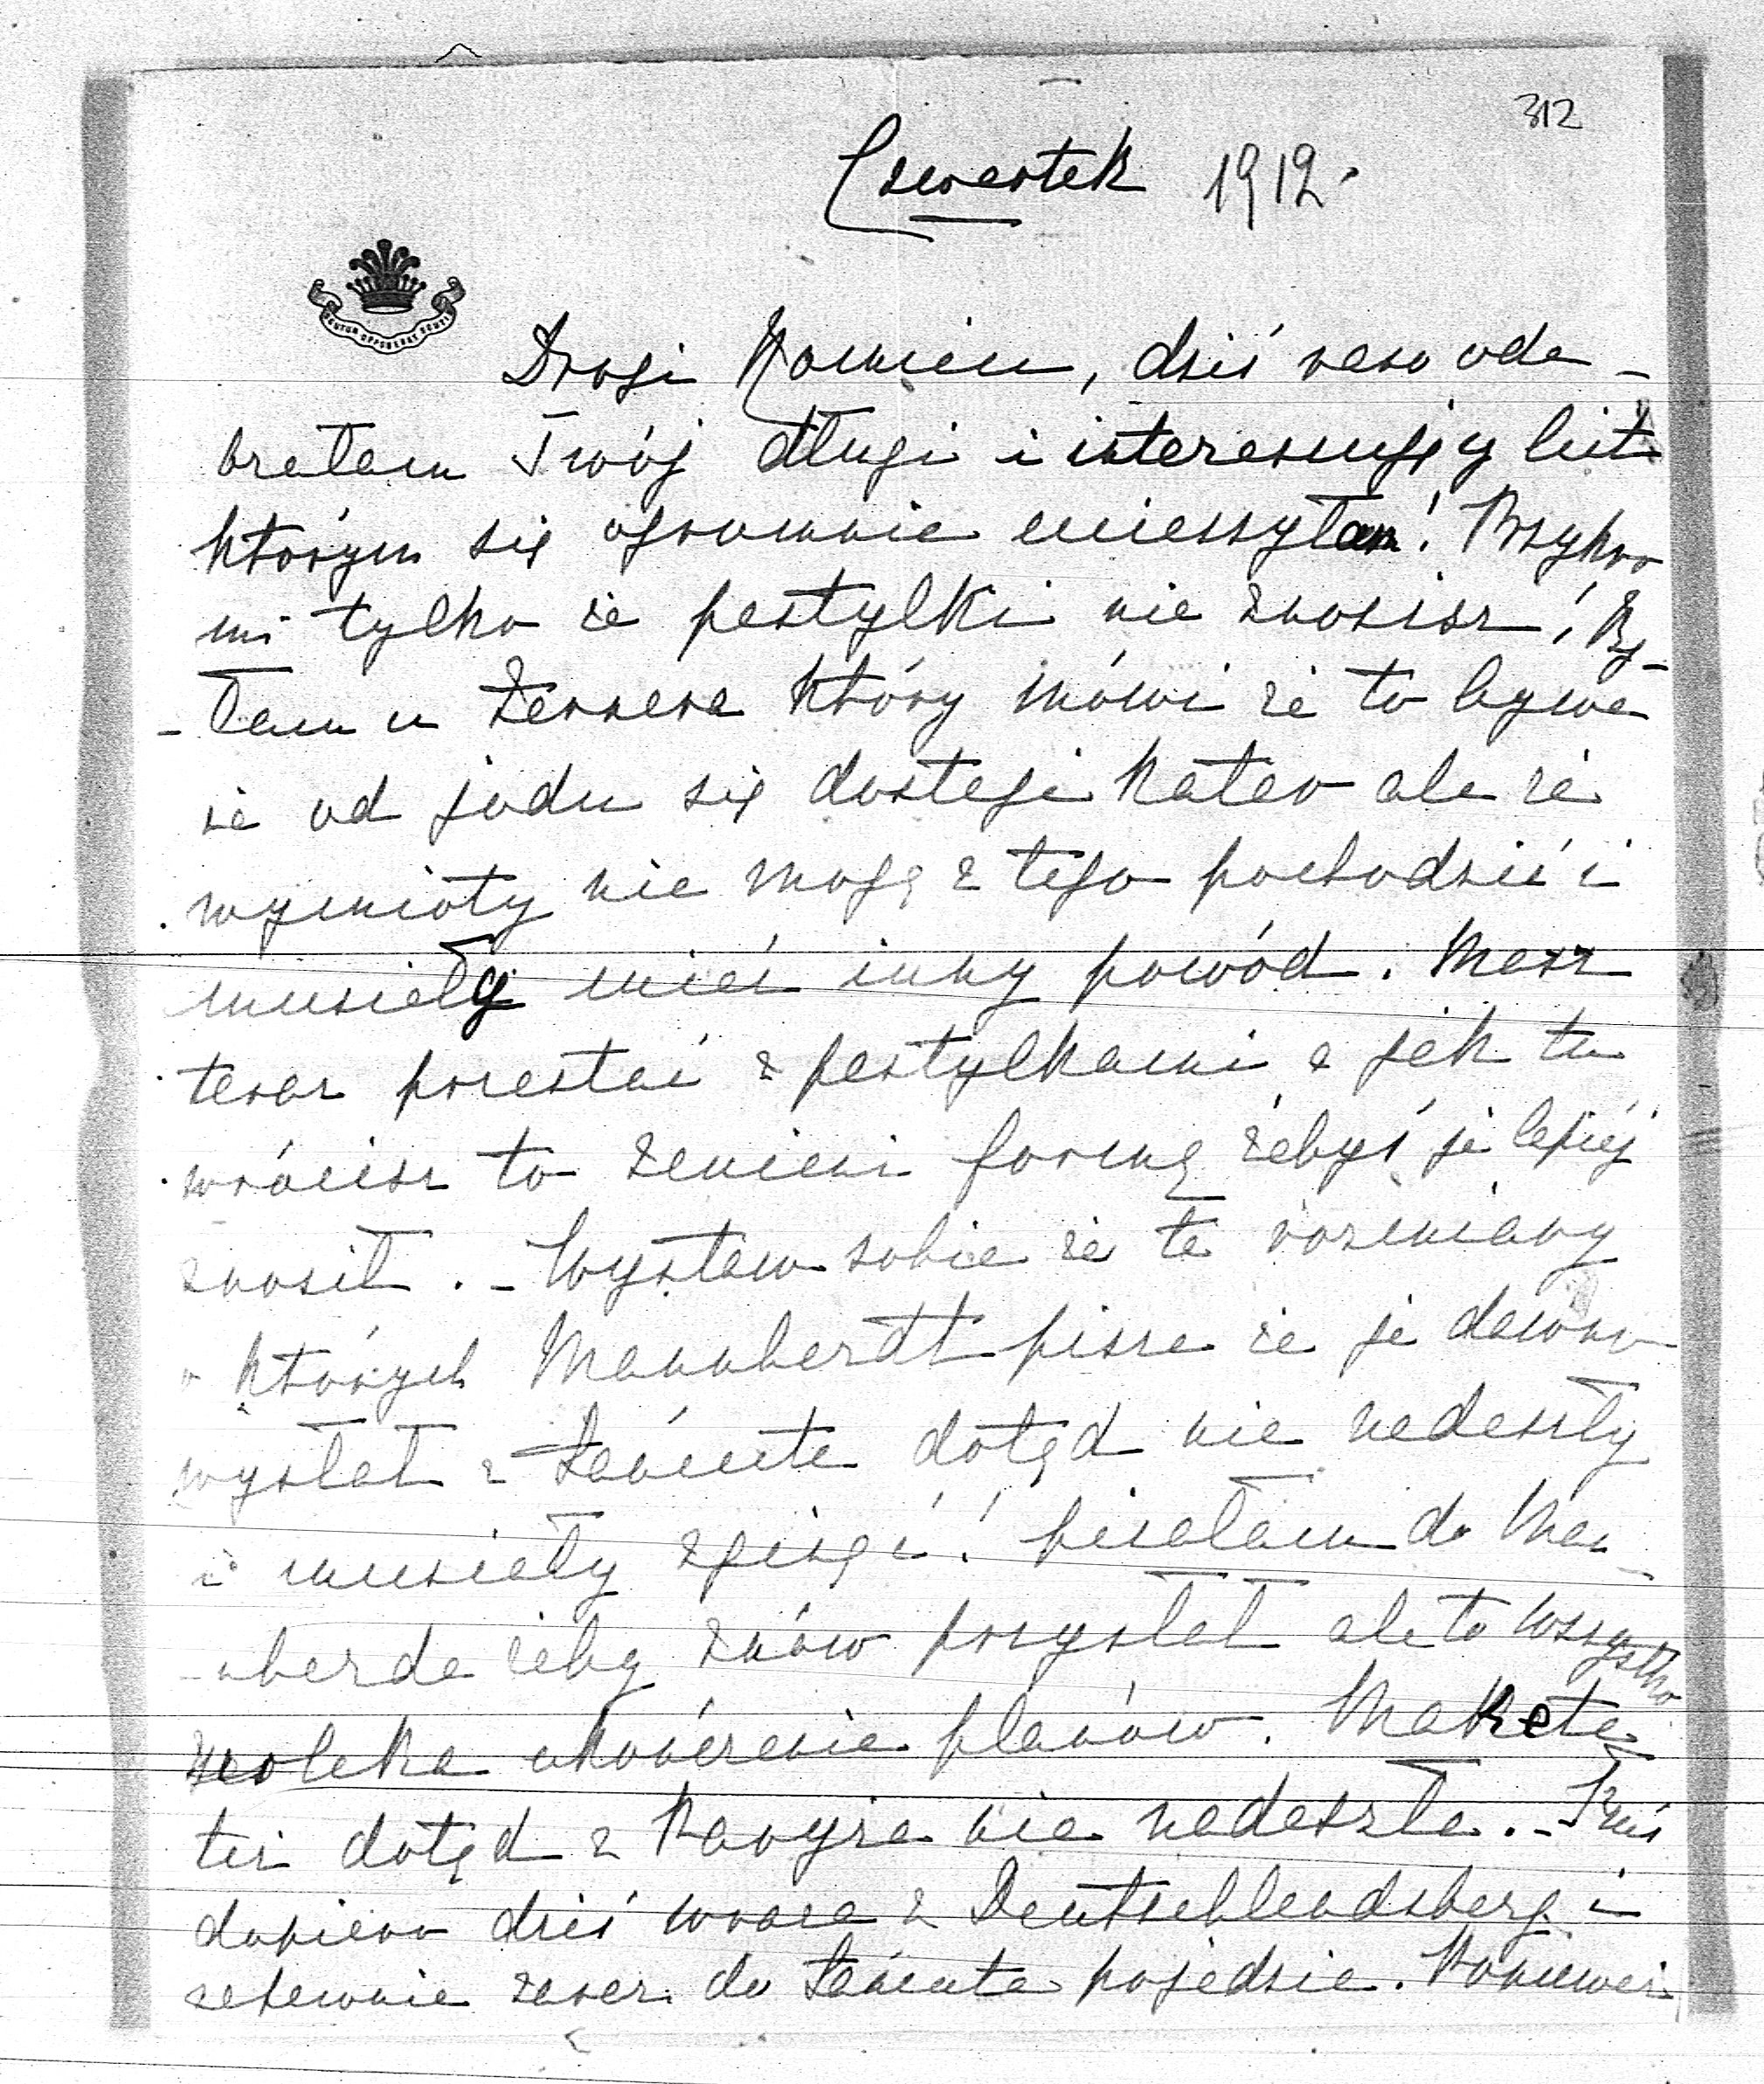 312
Czwartek 1912.
DEUTUM OPPONERAT SCUTI
Drogi Kamciu, dziś rano ode-
brałam Twój długi i interesujący list
którym się ogromnie ucieszyłam! Przykro
mi tylko że pastylki nie znosisz! By-
-łam u Zerzera który mówi że to bywa
że od jodu się dostaje katar ale że
wymioty nie mogą z tego pochodzić i
musiały mieć inny powód. Masz
teraz przestać z pastylkami a jak tu
wrócisz to zmieni formę żebyś je lepiej
znosił. - Wystaw sobie że te
o których Mannherdt pisze że je dawno
wysłał z Łańcuta dotąd nie nadeszły
i musiały zginąć! pisałam do Man-
-nherda żeby znów przysłał ale to wszystko
zwleka ukończenie planów. Makieta
też dotąd z Paryża nie nadeszła. -
dopiero dziś wraca z Deutschlandsberg i
zapewnie zaraz do Łańcuta pojedzie. Ponieważ